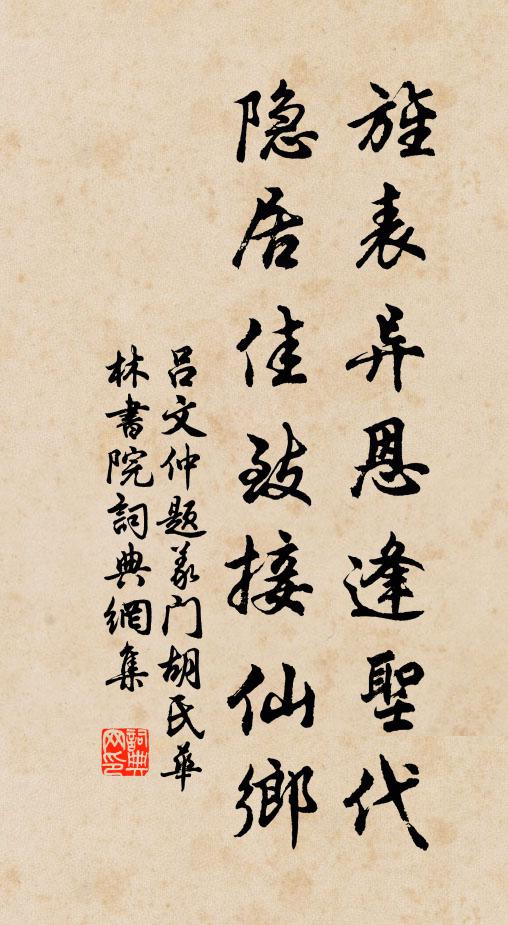 旌表异恩逢聖代
隐居佳致接仙鄉
吕文仲题义门胡氏華
林書院詞典網集
詞典
网印